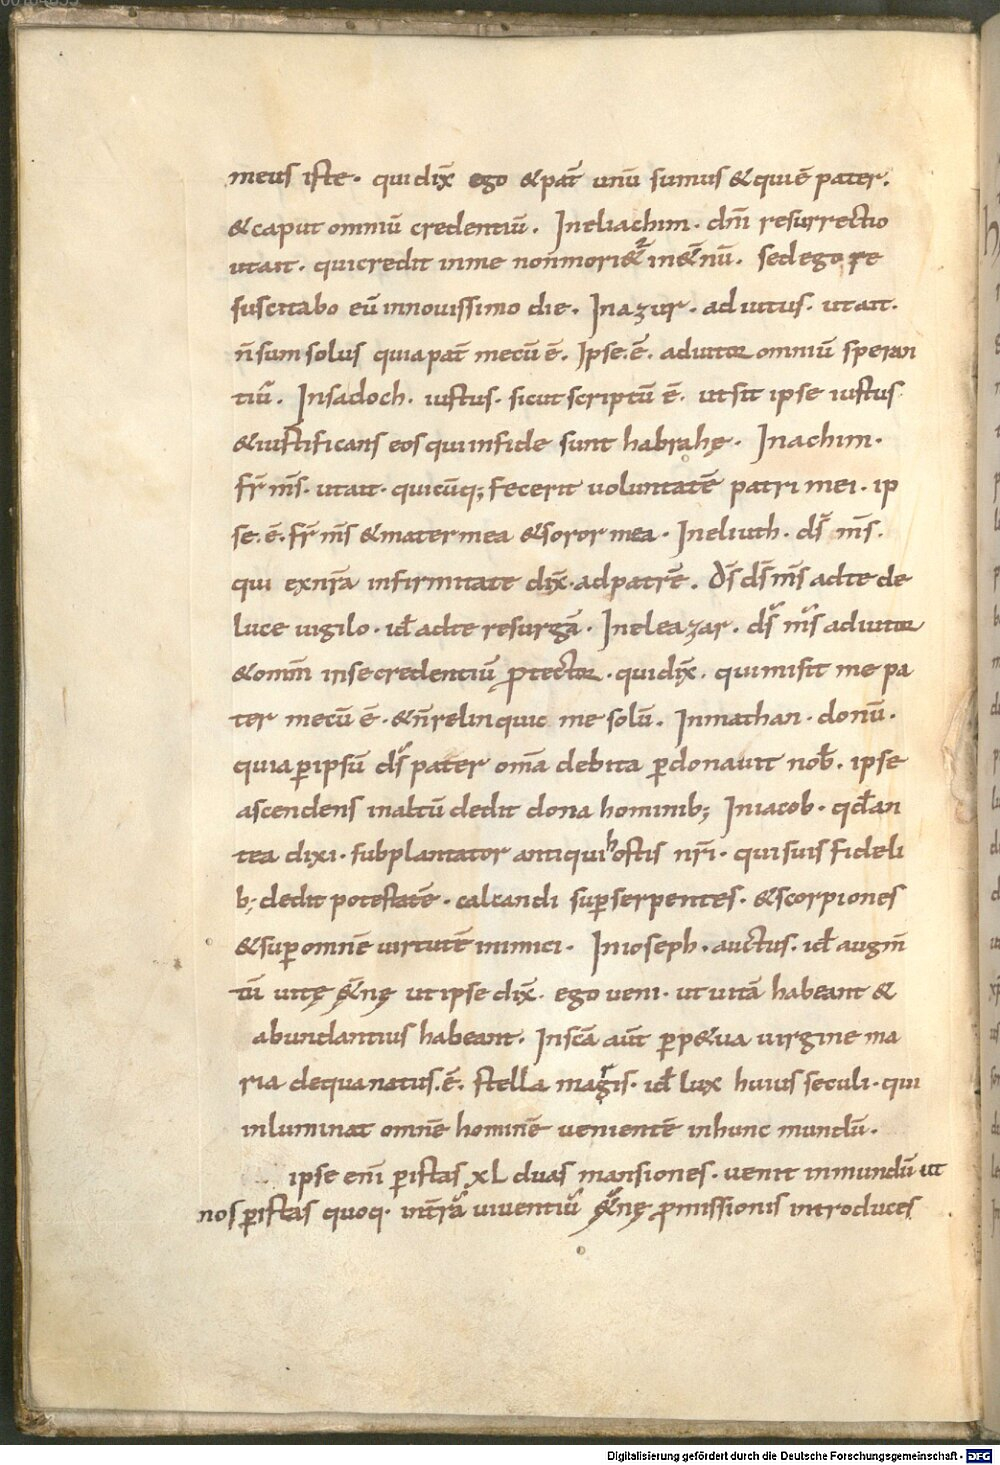 meus iste· qui dix̄ ego &pat̄ unū sumus & quiē pater.
&caput omniū credentiū. Ineliachim· dn̄i resurrectio
utait· quicredit inme nonmori&̄ in&̄nū. sedego re
suscitabo eū innouissimo die. Inazur· adiutus· utait.
n̄ sum solus quiapat̄ mecū ē. Ipse·ē· adiutor omniū speran
tiū. Insadoch· iustus· sicut scriptū ē· utsit ipse iustus
&iustificans eos quiinfide sunt habrahę. Inachim·
fr̄ m̄s· utait· quicūq; fecerit uoluntatē patri mei· ip
se·ē· fr̄ m̄s &mater mea &soror mea. Ineliuth· ds̄ m̄s.
qui exnr̄a infirmitate dix̄·adpatrē. Ds̄ ds̄ m̄s adte de
luce uigilo· id̄ adte resurgā. Ineleazar· ds̄ m̄s adiutor
&omn̄i insecredentiū ꝓtector· quidix̄. quimisit me pa
ter mecū ē· &n̄ relinquic me solū. Inmathan· donū.
quiaꝑipsū ds̄ pater om̄a debita ꝑdonauit nob̄. ipse
ascendens inaltū dedit dona hominib; Iniacob· qd̄ an
tea dixi· subplantator antiqui hostis nr̄i· quisuis fideli
b; dedit potestatē· calcandi suꝑserpentes· &scorpiones
&suꝑ omnē uirtutē inimici. Inioseph· auctus· id̄ augm̄
tū uitę &̄nę ut ipse dix̄· ego ueni· ut uitā habeant &
abundantius habeant. Inscā aūt ꝑp&ua uirgine ma
ria dequa natus·ē· stella maris· id̄ lux huius seculi· qui
inluminat omnē hominē uenientē inhunc mundū.
ipse eni ꝑistas xL duas mansiones· uenit inmundū ut
nos ꝑistas quoq· int̄rā uiuentiū &̄nę ꝓmissionis introduces
Digitalisierung gefördert durch die Deutsche Forschungsgemeinschaft - DFG